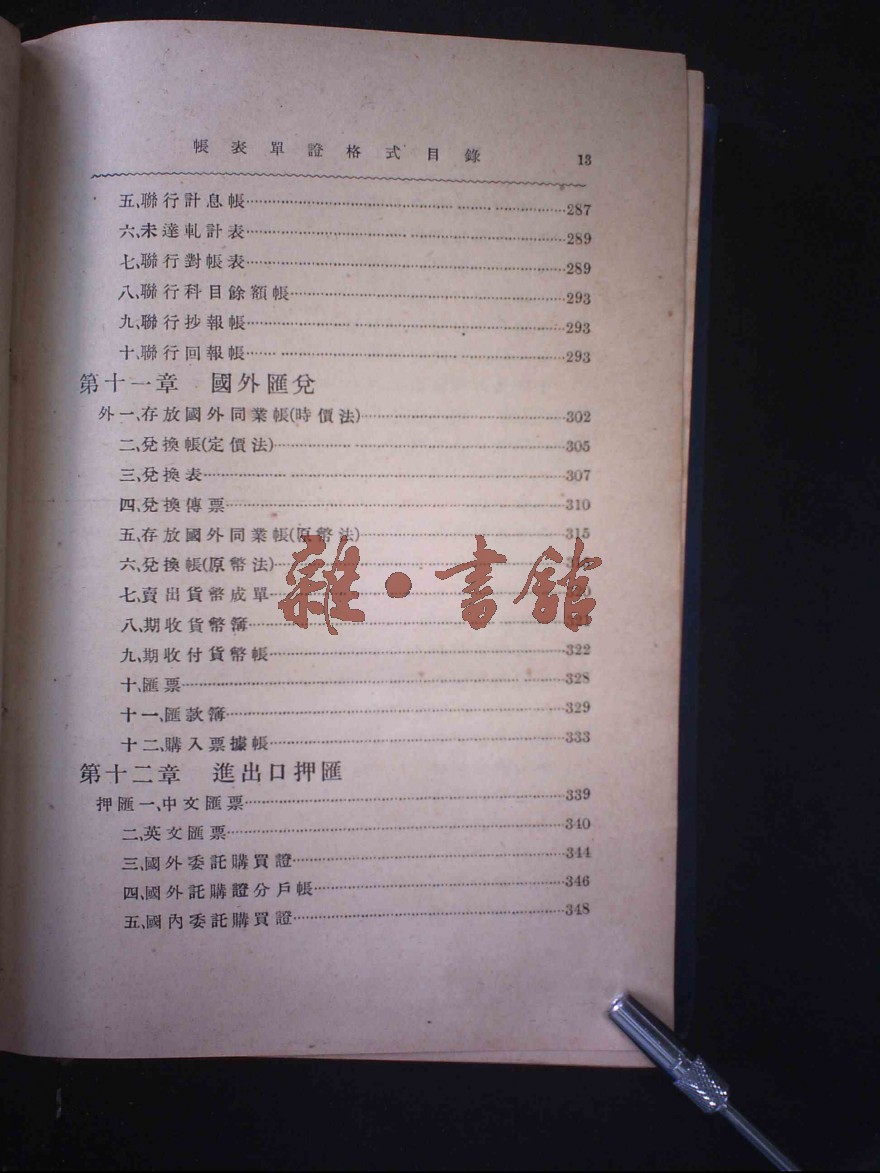 帳表單證格式目錄 13
五、聯行計息帳……287
六、未達軋計表……289
七、聯行對帳表……289
八、聯行科目餘額帳……293
九、聯行抄報帳……293
十、聯行回報帳……293
第十一章 國外匯兌
外一、存放國外同業帳(時價法)……302
二、兌換帳(定價法)……305
三、兌換表……307
四、兌換傳票……310
五、存放國外同業帳(原幣法)……315
六、兌換帳(原幣法)……
七、賣出貨幣成單……
八、期收貨幣簿……
九、期收付貨幣帳……322
十、匯票……328
十一、匯款簿……329
十二、購入票據帳……333
第十二章 進出口押匯
押匯一、中文匯票……339
二、英文匯票……340
三、國外委託購買證……344
四、國外託購證分戶帳……346
五、國內委託購買證……348
雜·書舘